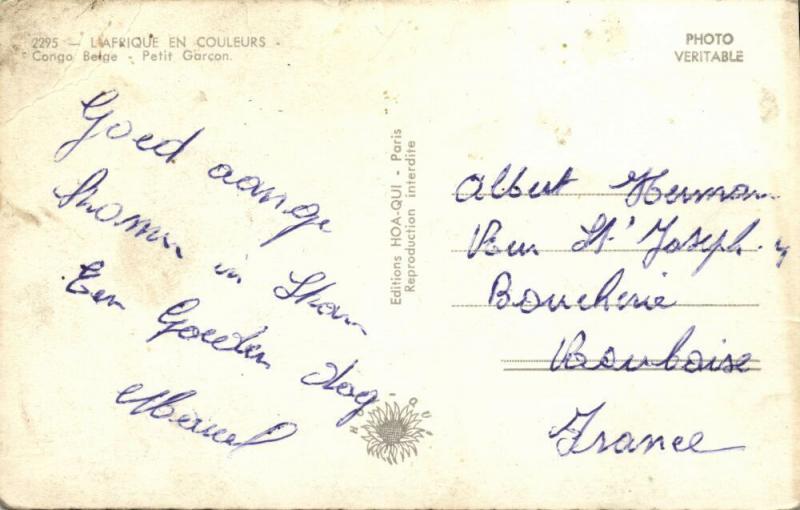 2295 – L'AFRIQUE EN COULEURS -
Congo Belge - Petit Garçon.
PHOTO
VERITABLE
Goed aange
in
Een Goeden dag
Marcel
Editions HOA-QUI - Paris
Reproduction interdite
HOA-QUI
Albert Herman
St' Joseph. 4
Boucherie
Roubaise
France